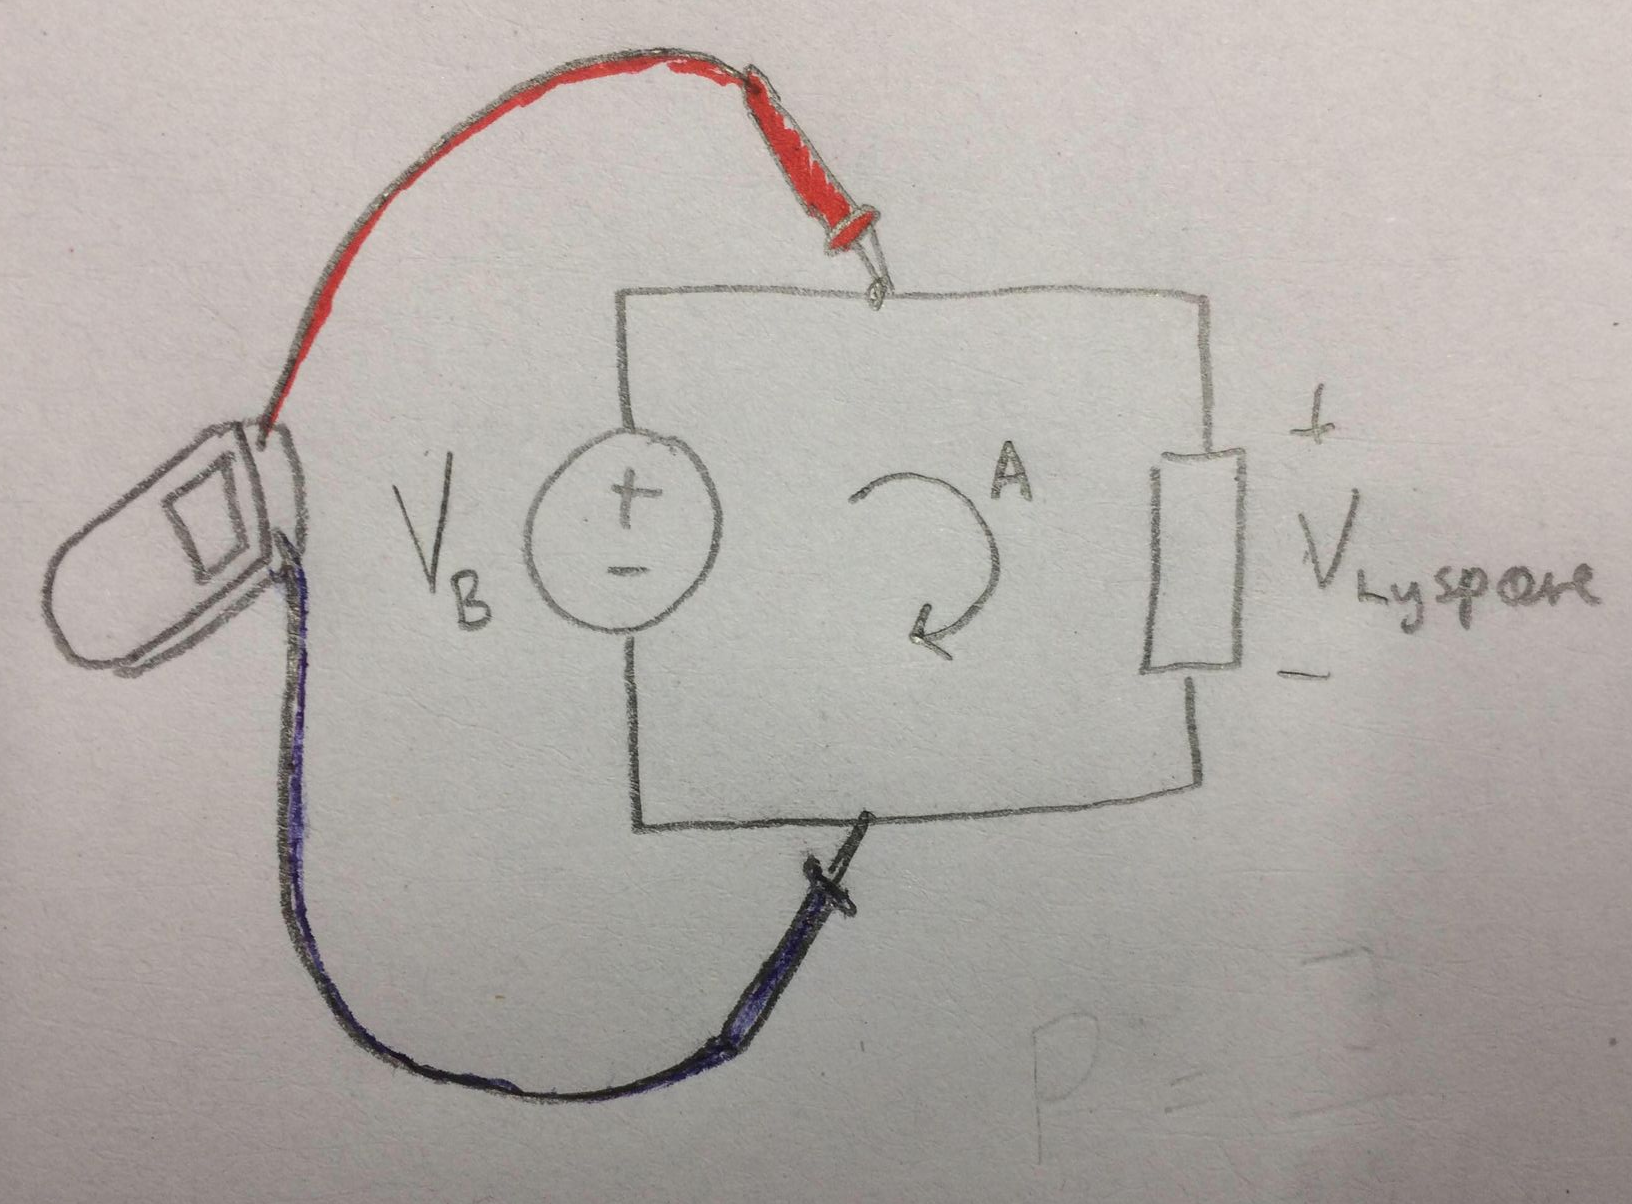 +
V_B
+
-
A
V_Lyspære
-
P =